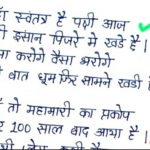 स्वतंत्र है पक्षी आज
इंसान पिंजरे में खडे है।
करोगे वैसा भरोगे
बात घूम फिर सामने खडी
है तो महामारी का प्रकोप
100 साल बाद आया है।